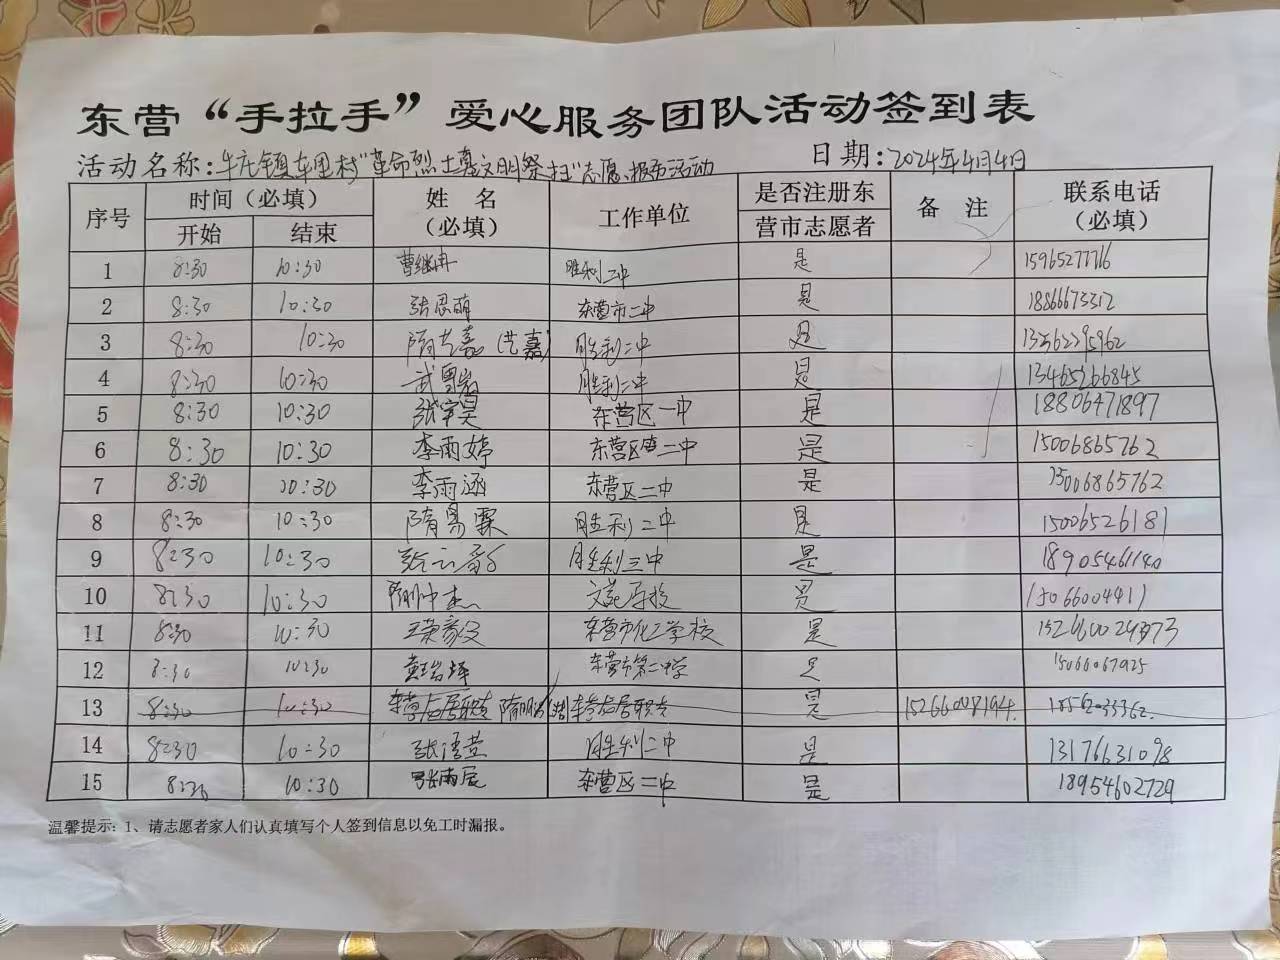 东营“手拉手”爱心服务团队活动签到表
活动名称:牛庄镇车里村“革命烈士墓文明祭扫”志愿服务活动 日期:2024年4月4日
序号 时间(必填) 姓名(必填) 工作单位 是否注册东营市志愿者 备注 联系电话(必填)
开始 结束
1 8:30 10:30 曹继冉 胜利二中 是 15965277716
2 8:30 10:30 张思萌 东营市二中 是 18866673312
3 8:30 10:30 隋艺嘉(艺嘉) 胜利二中 是
4 8:30 10:30 武 胜利二中 是 13465266845
5 8:30 10:30 张宇昊 东营区一中 是 18806471897
6 8:30 10:30 李雨婷 东营区第二中 是 15006865762
7 8:30 10:30 李雨涵 东营区二中 是 15006865762
8 8:30 10:30 隋易霖 胜利二中 是 15006526181
9 8:30 10:30 胜利三中 是 18905461140
10 8:30 10:30 文苑学校 是 15066004411
11 8:30 10:30 东营市化工学校 是
12 8:30 10:30 东营市第二中学 是 15066067925
13 8:30 10:30 是 15266008194.
14 8:30 10:30 张语萱 胜利二中 是 13176631098
15 8:30 10:30 张雨辰 东营区二中 是 18954602729
温馨提示:1、请志愿者家人们认真填写个人签到信息以免工时漏报。